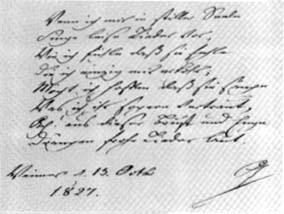 Wenn ich mir in stiller Seele
Singe leise Lieder vor,
Wie ich fühle daß sie fehle
Die ich einzig mir erkohr,
Möcht ich hoffen daß sie sänge
Was ich ihr so gern vertraut,
Ach! aus dieser Brust und Enge
Drängen frohe Lieder laut.
Weimar d. 13. Octb
1827.
G